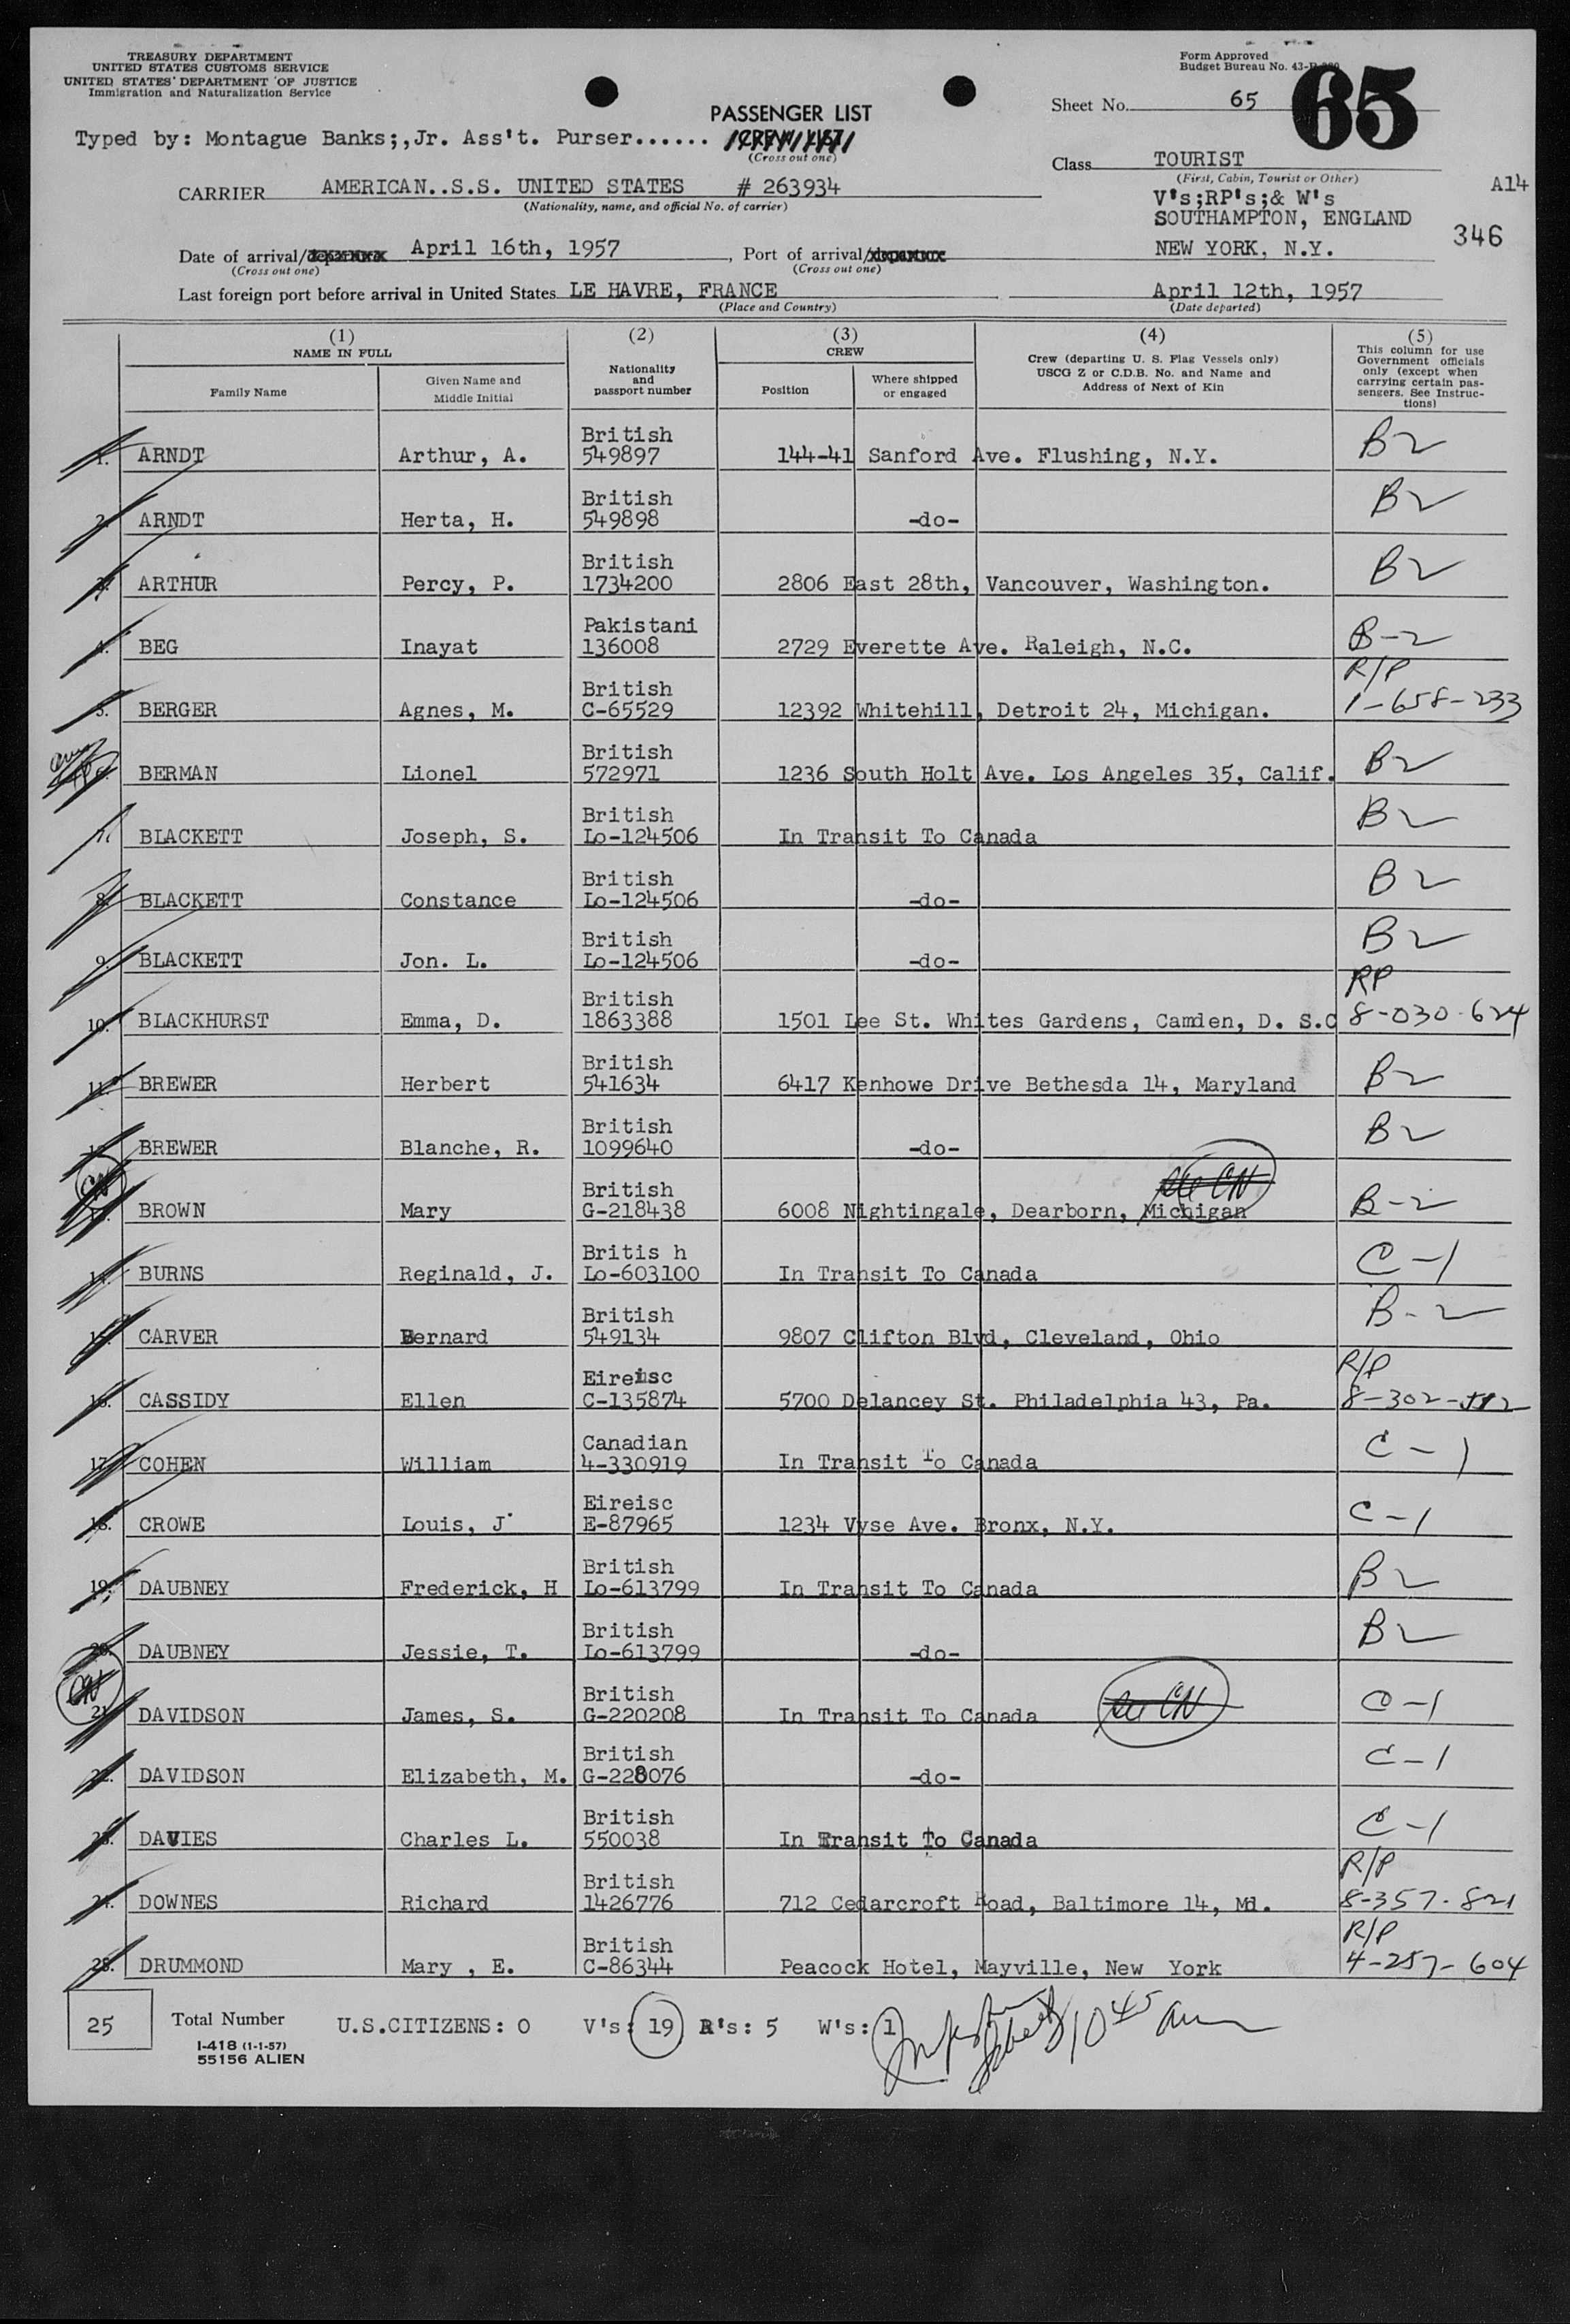 TREASURY DEPARTMENT
UNITED STATES CUSTOMS SERVICE
UNITED STATES DEPARTMENT OF JUSTICE
Immigration and Naturalization Service
Form Approved
Budget Bureau No. 43-
PASSENGER LIST
Sheet No. 65
65
Typed by: Montague Banks;,Jr. Ass't. Purser......
(Cross out one)
Class TOURIST
(First, Cabin, Tourist or Other)
A14
CARRIER AMERICAN..S.S. UNITED STATES # 263934
(Nationality, name, and official No. of carrier)
V's;RP's;& W's
SOUTHAMPTON, ENGLAND
346
Date of arrival/ April 16th, 1957, Port of arrival/ NEW YORK, N.Y.
(Cross out one) (Cross out one)
Last foreign port before arrival in United States LE HAVRE, FRANCE April 12th, 1957
(Place and Country) (Date departed)
(1) (2) (3) (4) (5)
NAME IN FULL
Family Name
Given Name and Middle Initial
Nationality and passport number
CREW
Position
Where shipped or engaged
Crew (departing U. S. Flag Vessels only) USCG Z or C.D.B. No. and Name and Address of Next of Kin
This column for use Government officials only (except when carrying certain passengers. See Instructions)
1. ARNDT Arthur, A. British 549897 144-41 Sanford Ave. Flushing, N.Y. B2
2. ARNDT Herta, H. British 549898 -do- B2
3. ARTHUR Percy, P. British 1734200 2806 East 28th, Vancouver, Washington. B2
4. BEG Inayat Pakistani 136008 2729 Everette Ave. Raleigh, N.C. B-2
5. BERGER Agnes, M. British C-65529 12392 Whitehill, Detroit 24, Michigan. R/P 1-658-233
6. BERMAN Lionel British 572971 1236 South Holt Ave. Los Angeles 35, Calif. B2
7. BLACKETT Joseph, S. British Lo-124506 In Transit To Canada B2
8. BLACKETT Constance British Lo-124506 -do- B2
9. BLACKETT Jon. L. British Lo-124506 -do- B2
10. BLACKHURST Emma, D. British 1863388 1501 Lee St. Whites Gardens, Camden, D. S.C RP 8-030-624
11. BREWER Herbert British 541634 6417 Kenhowe Drive Bethesda 14, Maryland B2
12. BREWER Blanche, R. British 1099640 -do- B2
CN
13. BROWN Mary British G-218438 6008 Nightingale, Dearborn, Michigan CN B-2
14. BURNS Reginald, J. Britis h Lo-603100 In Transit To Canada C-1
15. CARVER Bernard British 549134 9807 Clifton Blvd, Cleveland, Ohio B-2
16. CASSIDY Ellen Eireisc C-135874 5700 Delancey St. Philadelphia 43, Pa. R/P 8-302-
17. COHEN William Canadian 4-330919 In Transit To Canada C-1
18. CROWE Louis, J. Eireisc E-87965 1234 Vyse Ave. Bronx, N.Y. C-1
19. DAUBNEY Frederick, H British Lo-613799 In Transit To Canada B2
20. DAUBNEY Jessie, T. British Lo-613799 -do- B2
CN
21. DAVIDSON James, S. British G-220208 In Transit To Canada CN C-1
22. DAVIDSON Elizabeth, M. British G-228076 -do- C-1
23. DAVIES Charles L. British 550038 In Transit to Canada C-1
24. DOWNES Richard British 1426776 712 Cedarcroft Road, Baltimore 14, Md. R/P 8-357-821
25. DRUMMOND Mary , E. British C-86344 Peacock Hotel, Mayville, New York R/P 4-257-604
25 Total Number U.S.CITIZENS: 0 V's: 19 R's: 5 W's: 1 10 45 am
I-418 (1-1-57)
55156 ALIEN